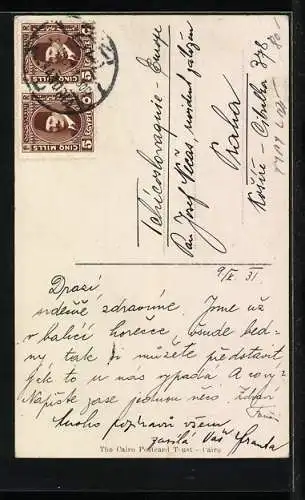 CINQ MILLS
EGYPTE
5 5
CINQ MILLS
EGYPTE
5 5
Tchécoslovaquie - Europe
Pan Josef Nečas, resident
Praha
Košíře - Cibulka 378
9/II. 31.
Drazí
srdečně zdravíme. Jsme už
v balící horečce, všude bed-
ny tak si můžete představit
jak to u nás vypadá. A co vy?
Napište zase jednou něco. Zdraví
mnoho pozdravů všem
zasílá Váš Franta
The Cairo Postcard Trust - Cairo